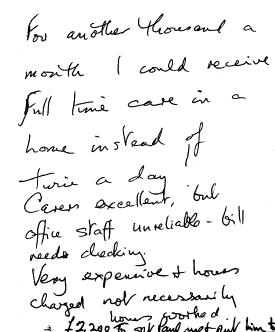 For another thousand a
month I could receive
Full time care in a
home instead of
twice a day
Carers excellent, but
office staff unreliable - bill
needs checking
Very expensive & hours
charged not necessarily
hours worked
£2200